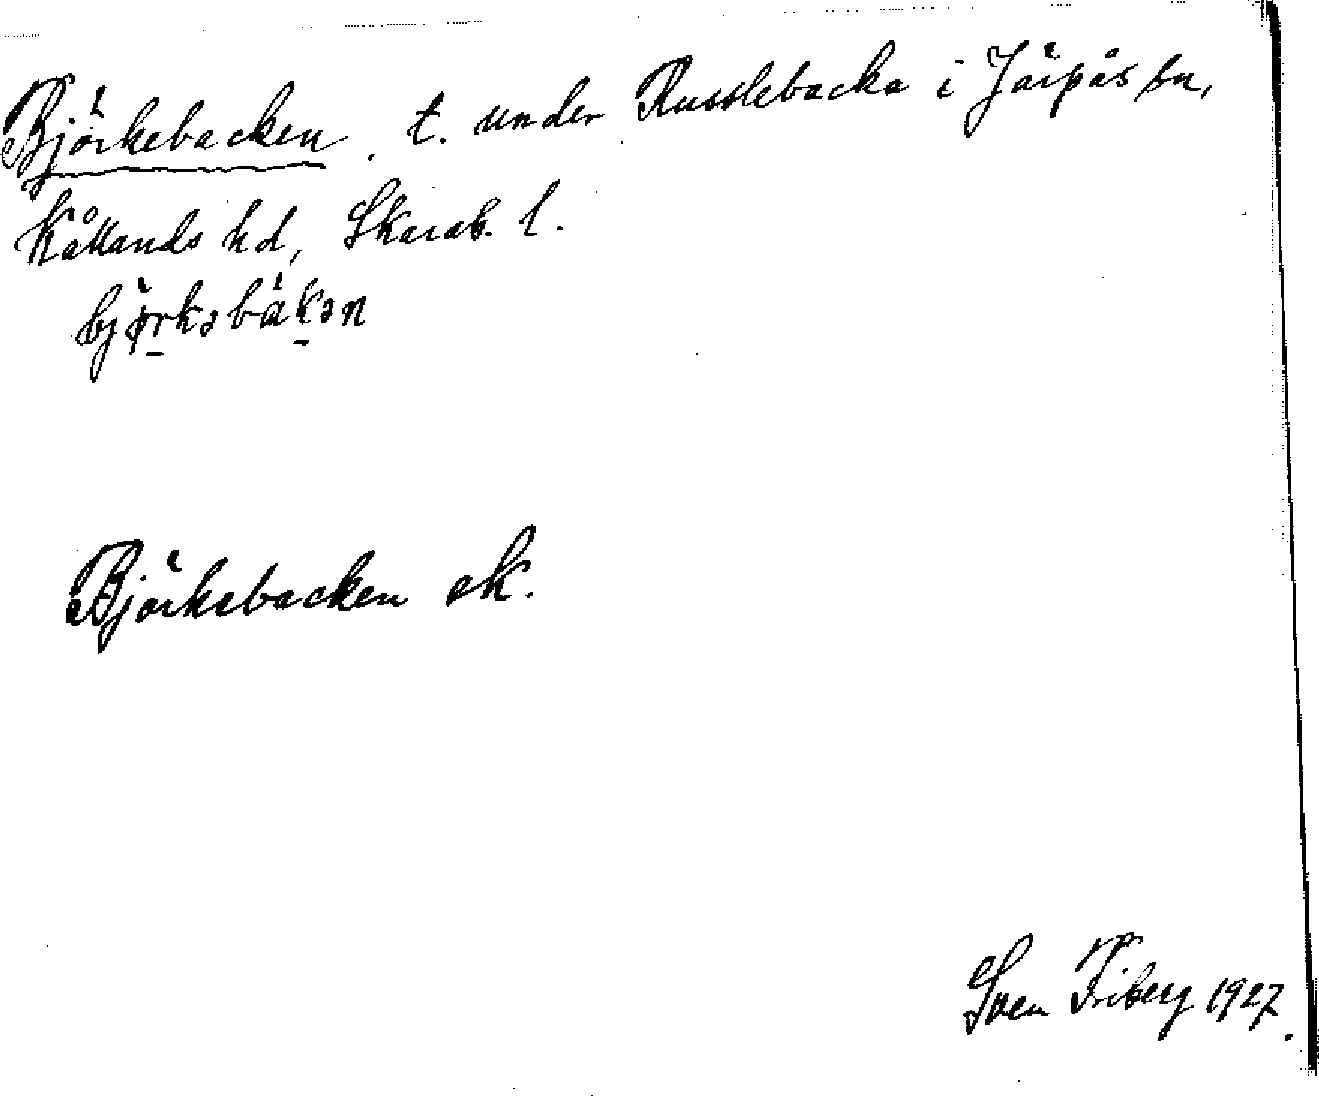 Björkebacken. t. under Russlebacka i Järpås sn,
Kållands hd, Skarab. l.
bjö̀rkəbákən
Björkebacken ek.
Sven Friberg 1927.